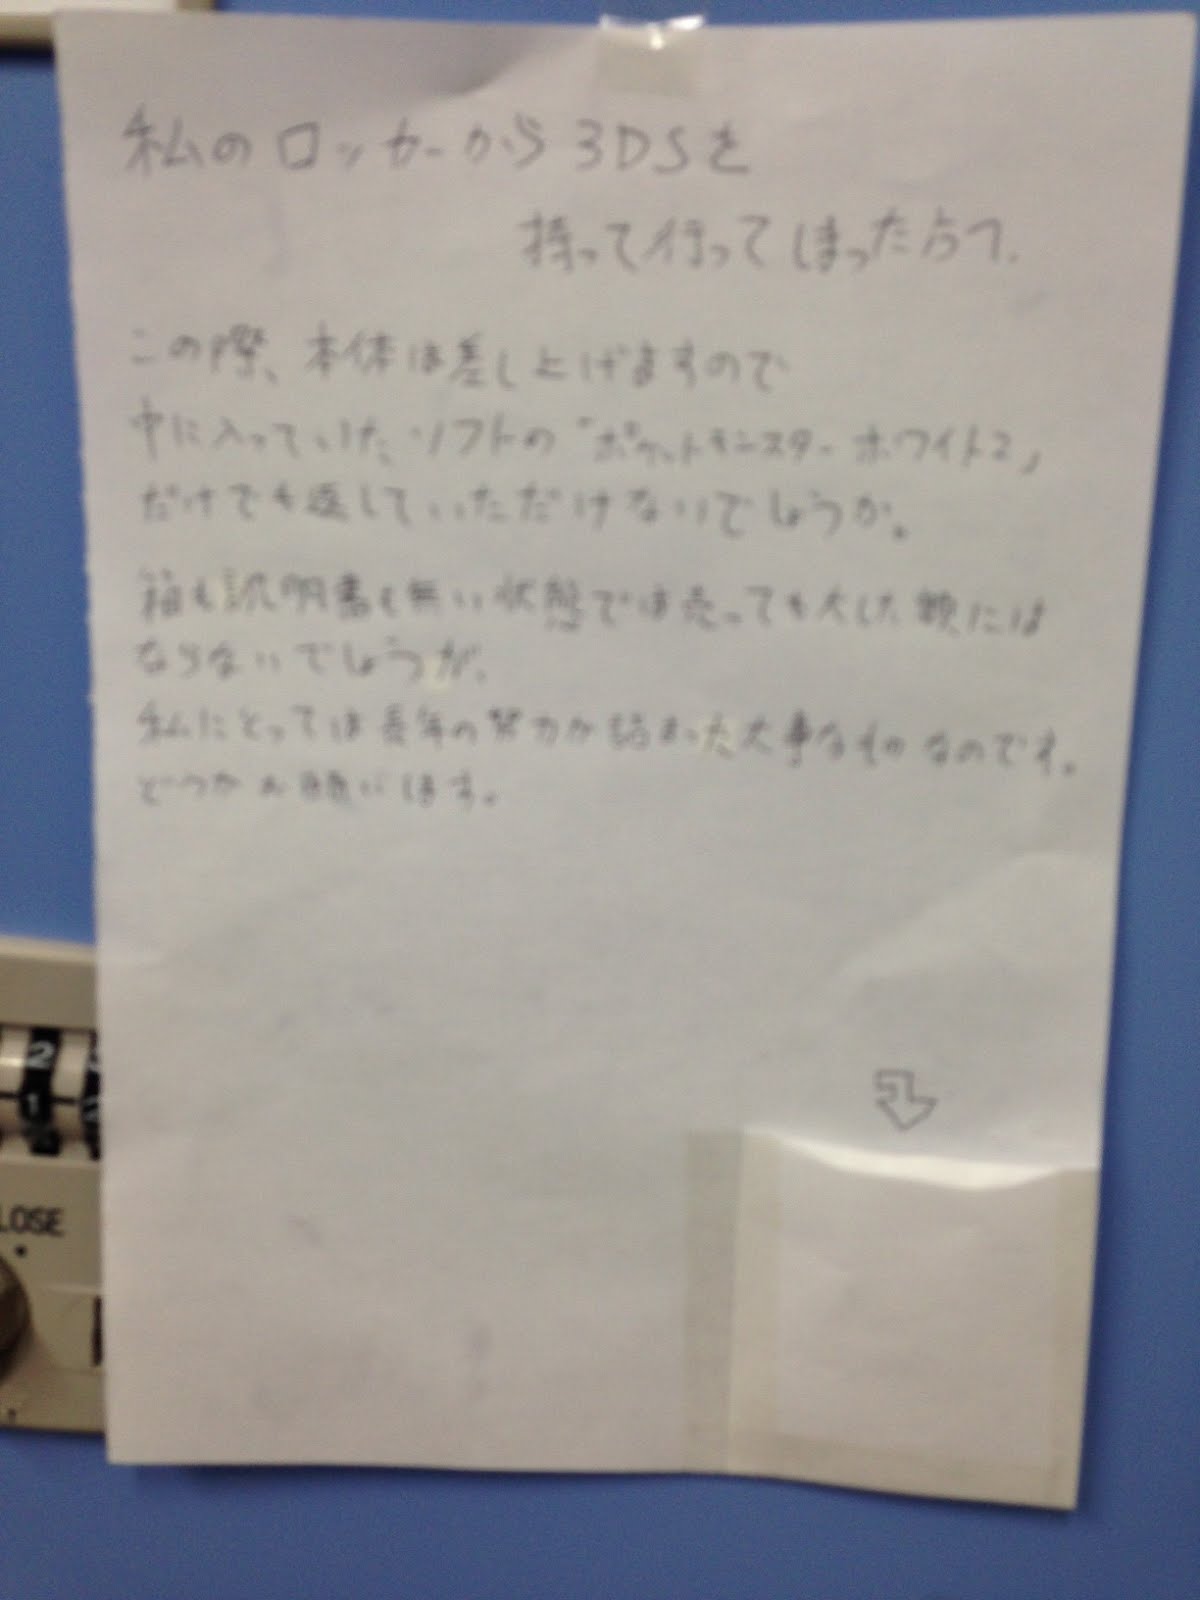 私のロッカーから3DSを
持って行ってしまった方へ.
この際、本体は差し上げますので
中に入っていた、ソフトの「ポケットモンスターホワイト2」
だけでも返していただけないでしょうか。
箱も説明書も無い状態では売っても大した額には
ならないでしょうが、
私にとっては長年の努力が詰まった大事なものなのです。
どうかお願いします。
2
1
LOSE